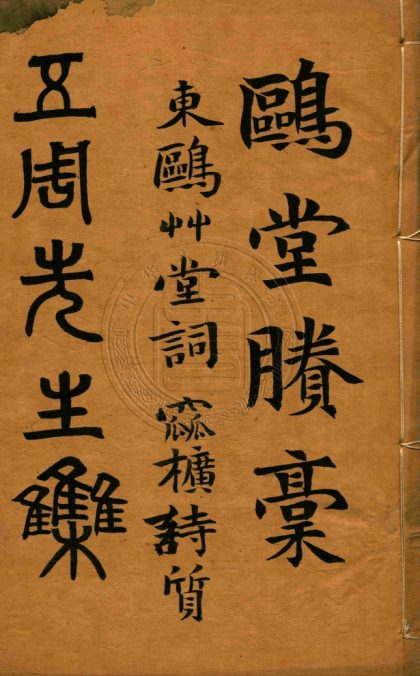 鷗堂賸稾
東鷗艸堂詞 窳櫎詩質
五周先生雧